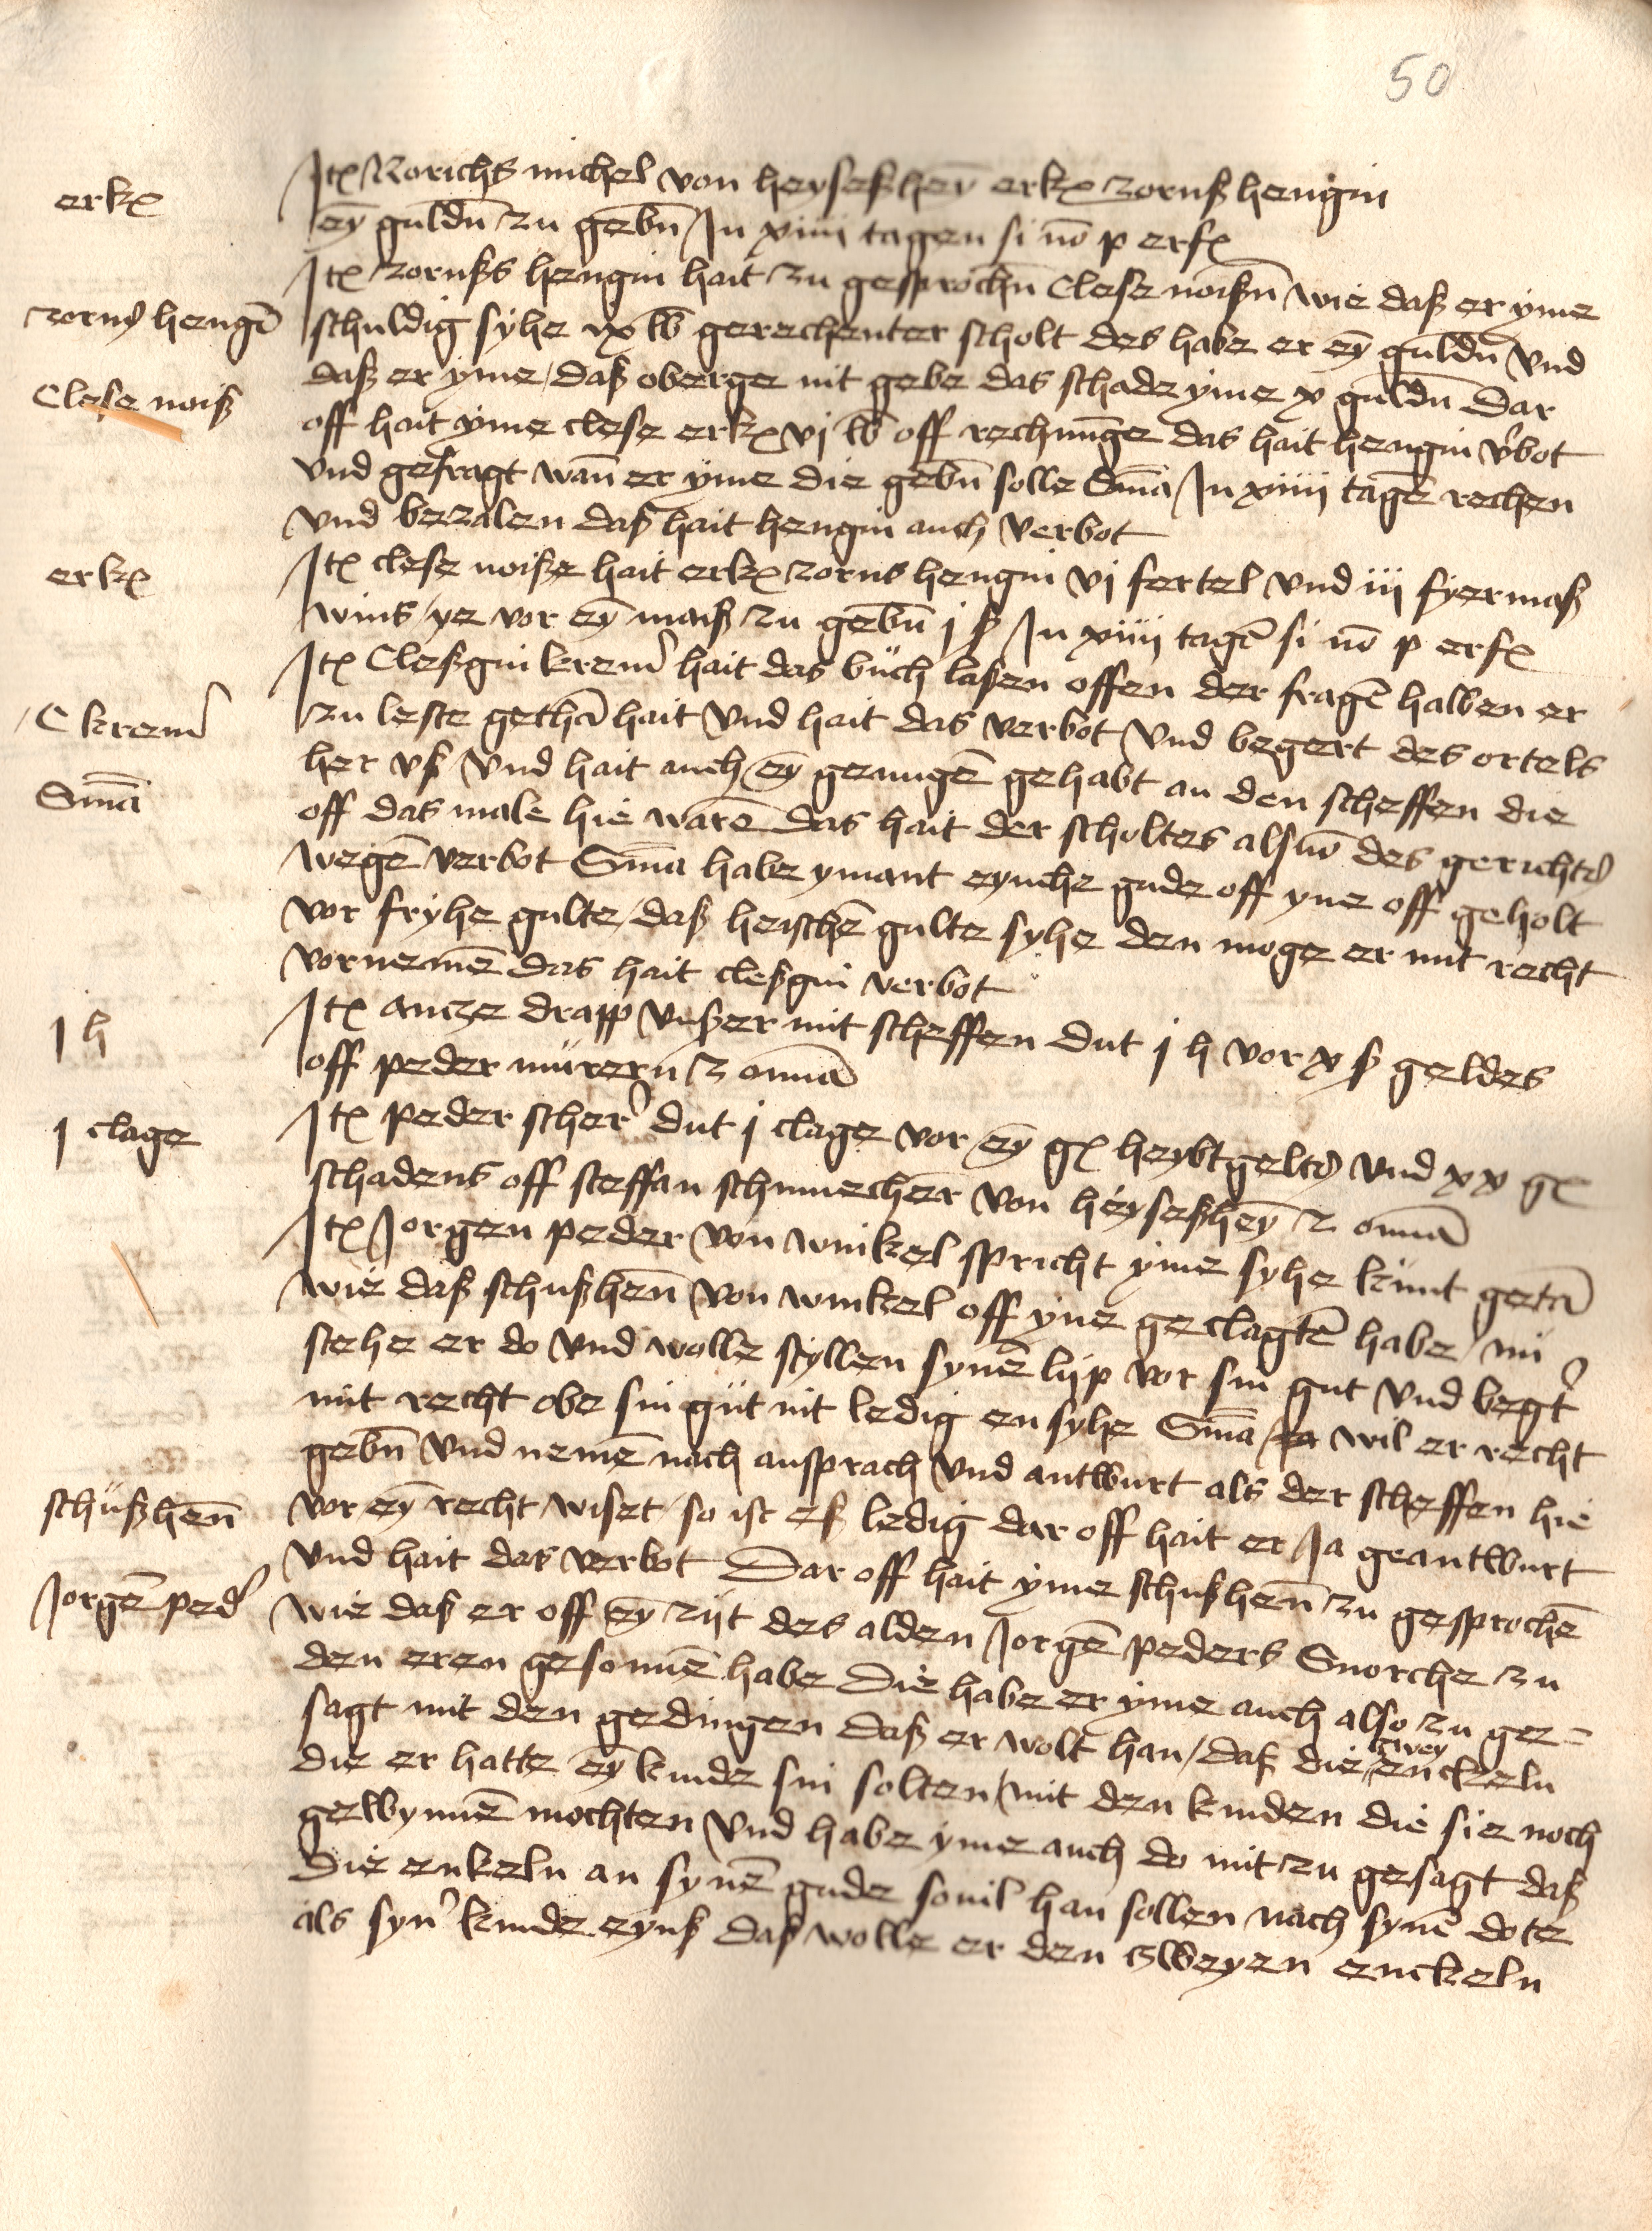 50
erkꝫ
Itꝫ Rorichs michel von heyseßhey̅ erkꝫ zornß hengin
ey̅ guldu̅ zu gebu̅ In xiiii tagen si no̅ p erfꝫ
Itꝫ zornßs hengin hait zu gesprochu̅ Clese noißu̅ wie daß er yme
zorns henge̅
schuldig syhe ix lb gerechenter scholt des habe er ey̅ guldu̅ vnd
Clese noiß
daß er yme / daß oberge nit gebe das schade yme x guldu̅ Dar
off hait yme clese erkꝫ vj lb off rechnu̅ge das hait hengin v͛bot
vnd gefragt wan̅ er yme die gebu̅ solle Sm̅a In xiiii tage̅ rechen
vnd bezalen daß hait hengin auch verbot
erkꝫ
Itꝫ clese noiße hait erkꝫ zorns hengin vj fertel vnd iii fyermaß
wins / ye vor ey̅ maiß zu gebu̅ j ß In xiiii tage̅ si no̅ p erfꝫ
Itꝫ Cleßgin krem͛ hait das buch laßen offen der frage̅ halben er
C krem͛
zu leste getha̅ hait vnd hait das verbot vnd begert des ortels
her vß vnd hait auch ey̅ gezuuge̅ gehabt an den scheffen die
Sm̅a
off das male hie ware̅ das hait der scholtes also̅ des gerichts
wege̅ verbot Sm̅a habe ymant eynche gude off yne off geholt
vor fryhe gulte / daß heische̅ gulte syhe den moge er mit recht
vorneme̅ das hait cleßgin verbot
I h
Itꝫ ancze drapp vnßer mit scheffen dut j h vor x ß geldes
off peder murern z om̅a
I clage
Itꝫ peder scher͛ dut j clage vor ey̅ gꝫ heybtgelts vnd xx gꝫ
schadens off steffan schumecher von heyseßhey̅ z om̅a
Itꝫ Jorgen peder von winkel spricht yme syhe kunt geta̅
wie daß schußhen̅ von winkel off yne geclagte̅ habe / nu
stehe er do vnd wolle styllen syne̅ lijp vor sin gut vnd begt͛
mit recht obe sin gut nit ledig en syhe Sm̅a / ja wil er recht
gebu̅ vnd neme̅ nach ansprach vnd antwurt als der scheffen hie
schußhen̅
vor ey̅ recht wiset / so ist eß ledig dar off hait er Ja geantwurt
vnd hait das verbot Dar off hait yme schußhen̅ zu gesproche̅
Jorge̅ ped͛
wie daß er off ey̅ zijt des alden Jorge̅ peders Snorche zu
den eren gesonne̅ habe Die habe er yme auch also zu ge=
sagt mit den gedingen daß er wolt han / daß die zwey enckeln
die er hatte ey̅ kinde sin solten / mit den kinden die sie noch
gewynne̅ mochten vnd habe yme auch do mit zu gesagt daß
die enkeln an syne̅ gude souil han sollen nach syne̅ dote
als syn͛ kinde eynß daß wolle er den zweyen enckeln